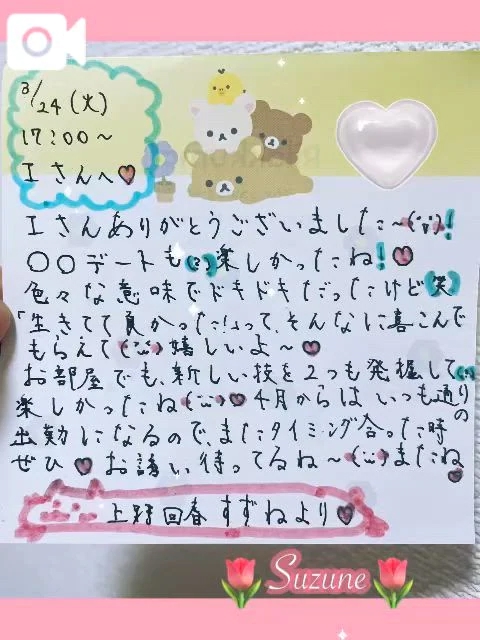 3/24(火)
17:00〜
Iさんへ♥
Iさんありがとうございました〜(¨̮)!
〇〇デートも(¨̮)楽しかったね!♥
色々な意味でドキドキだったけど(笑)
「生きてて良かった!」って、そんなに喜こんで
もらえて(¨̮)嬉しいよ〜♥
お部屋でも、新しい技を2つも発掘して(¨̮)
楽しかったね(¨̮)♥4月からは いつも通りの
出勤になるので、またタイミング合った時
ぜひ♥お誘い待ってるね〜(¨̮)またね♥
上野回春 すずねより♥
Suzune